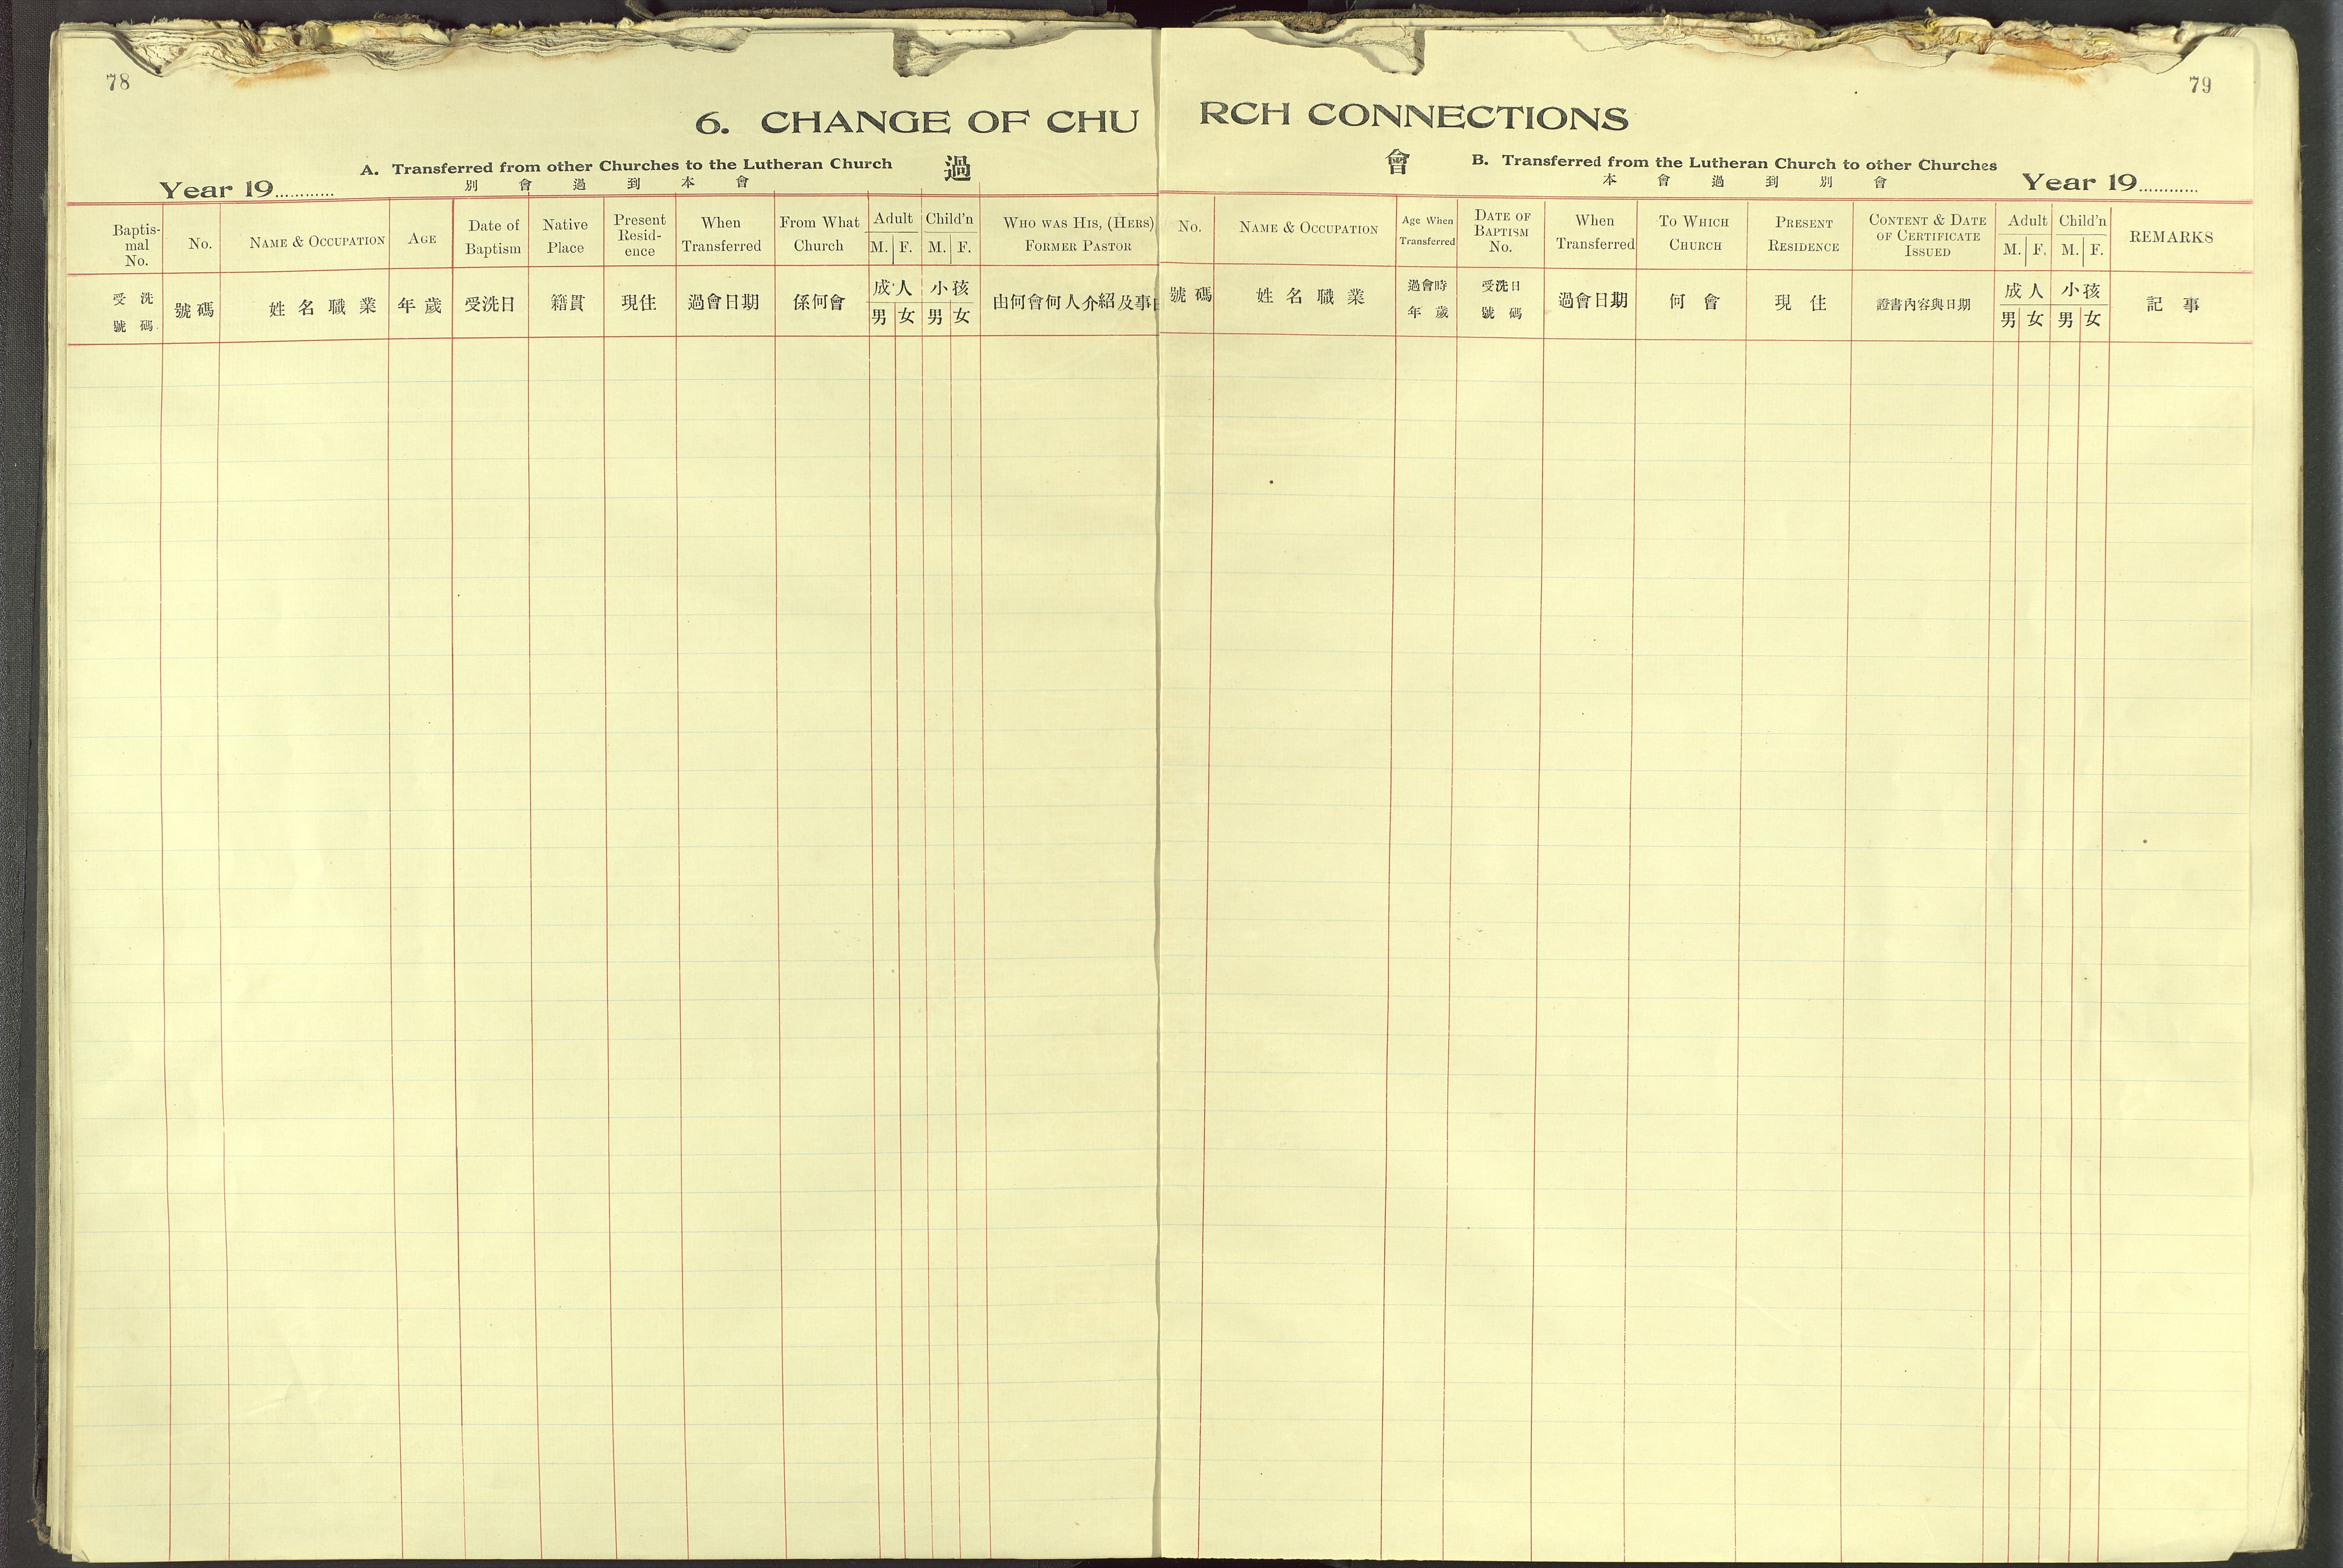 78
6. CHANGE OF CHU
A. Transferred from other Churches to the Lutheran Church 過
別 會 過 到 本 會
Year 19............
Baptis-mal No. No. NAME & OCCUPATION AGE Date of Baptism Native Place Present Resid-ence When Transferred From What Church Adult M. F. Child'n M. F. WHO WAS HIS, (HERS) FORMER PASTOR
受洗號碼 號碼 姓名職業 年歲 受洗日 籍貫 現住 過會日期 係何會 成人 男 女 小孩 男 女 由何會何人介紹及事
79
RCH CONNECTIONS
會 B. Transferred from the Lutheran Church to other Churches
本 會 過 到 別 會
Year 19............
No. NAME & OCCUPATION Age When Transferred DATE OF BAPTISM No. When Transferred TO WHICH CHURCH PRESENT RESIDENCE CONTENT & DATE OF CERTIFICATE ISSUED Adult M. F. Child'n M. F. REMARKS
號碼 姓名職業 過會時年歲 受洗日號碼 過會日期 何會 現住 證書內容與日期 成人 男 女 小孩 男 女 記事